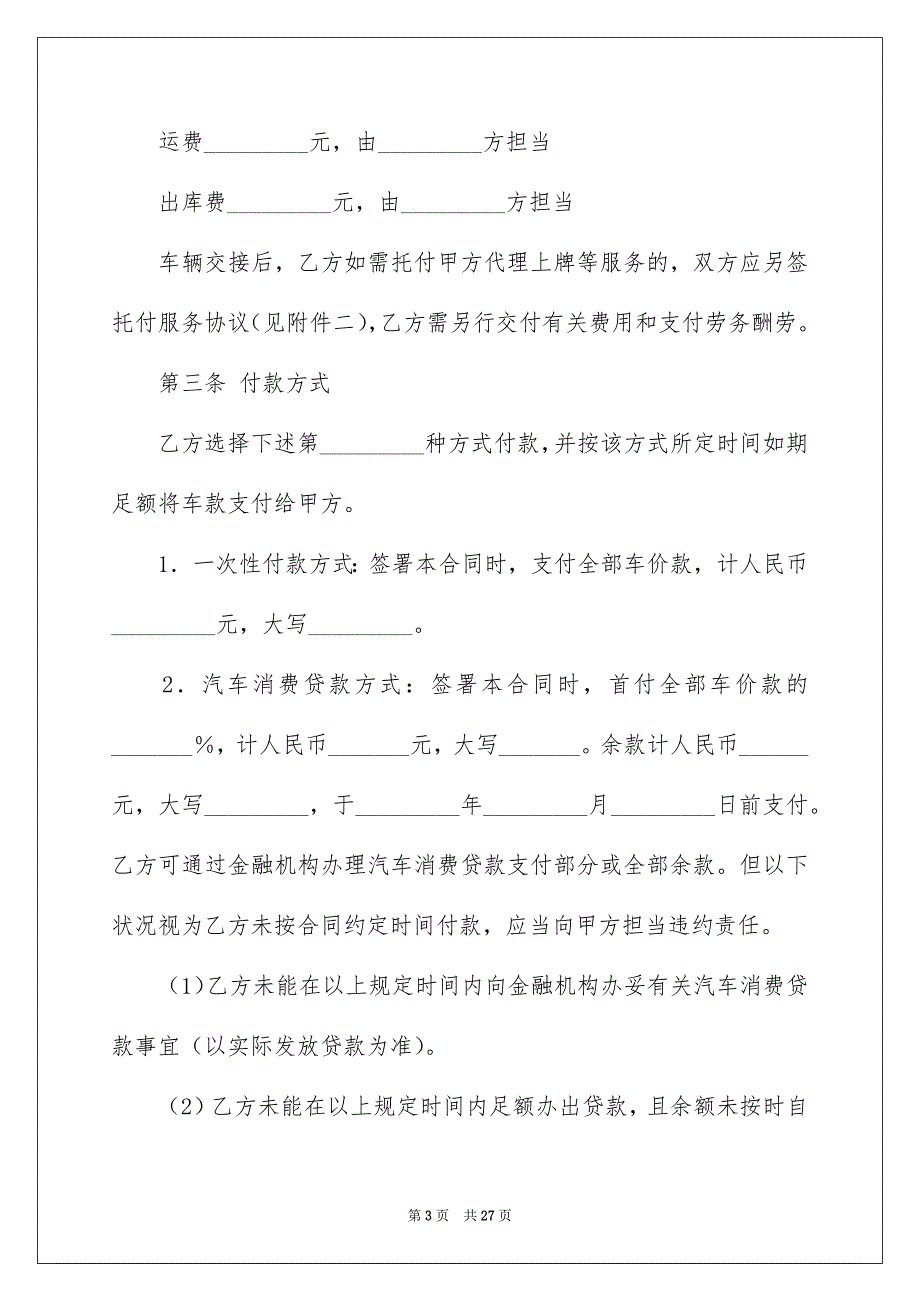 运费_________元，由_________方担当
出库费_________元，由_________方担当
车辆交接后，乙方如需托付甲方代理上牌等服务的，双方应另签
托付服务协议(见附件二)，乙方需另行交付有关费用和支付劳务酬劳。
第三条 付款方式
乙方选择下述第_________种方式付款，并按该方式所定时间如期
足额将车款支付给甲方。
1．一次性付款方式：签署本合同时，支付全部车价款，计人民币
_________元，大写_________。
2．汽车消费贷款方式：签署本合同时，首付全部车价款的
_______%，计人民币_______元，大写_______。余款计人民币______
元，大写_________，于_________年_________月_________日前支付。
乙方可通过金融机构办理汽车消费贷款支付部分或全部余款。但以下
状况视为乙方未按合同约定时间付款，应当向甲方担当违约责任。
（1)乙方未能在以上规定时间内向金融机构办妥有关汽车消费贷
款事宜（以实际发放贷款为准)。
（2)乙方未能在以上规定时间内足额办出贷款，且余额未按时自
第 3 页 共 27 页